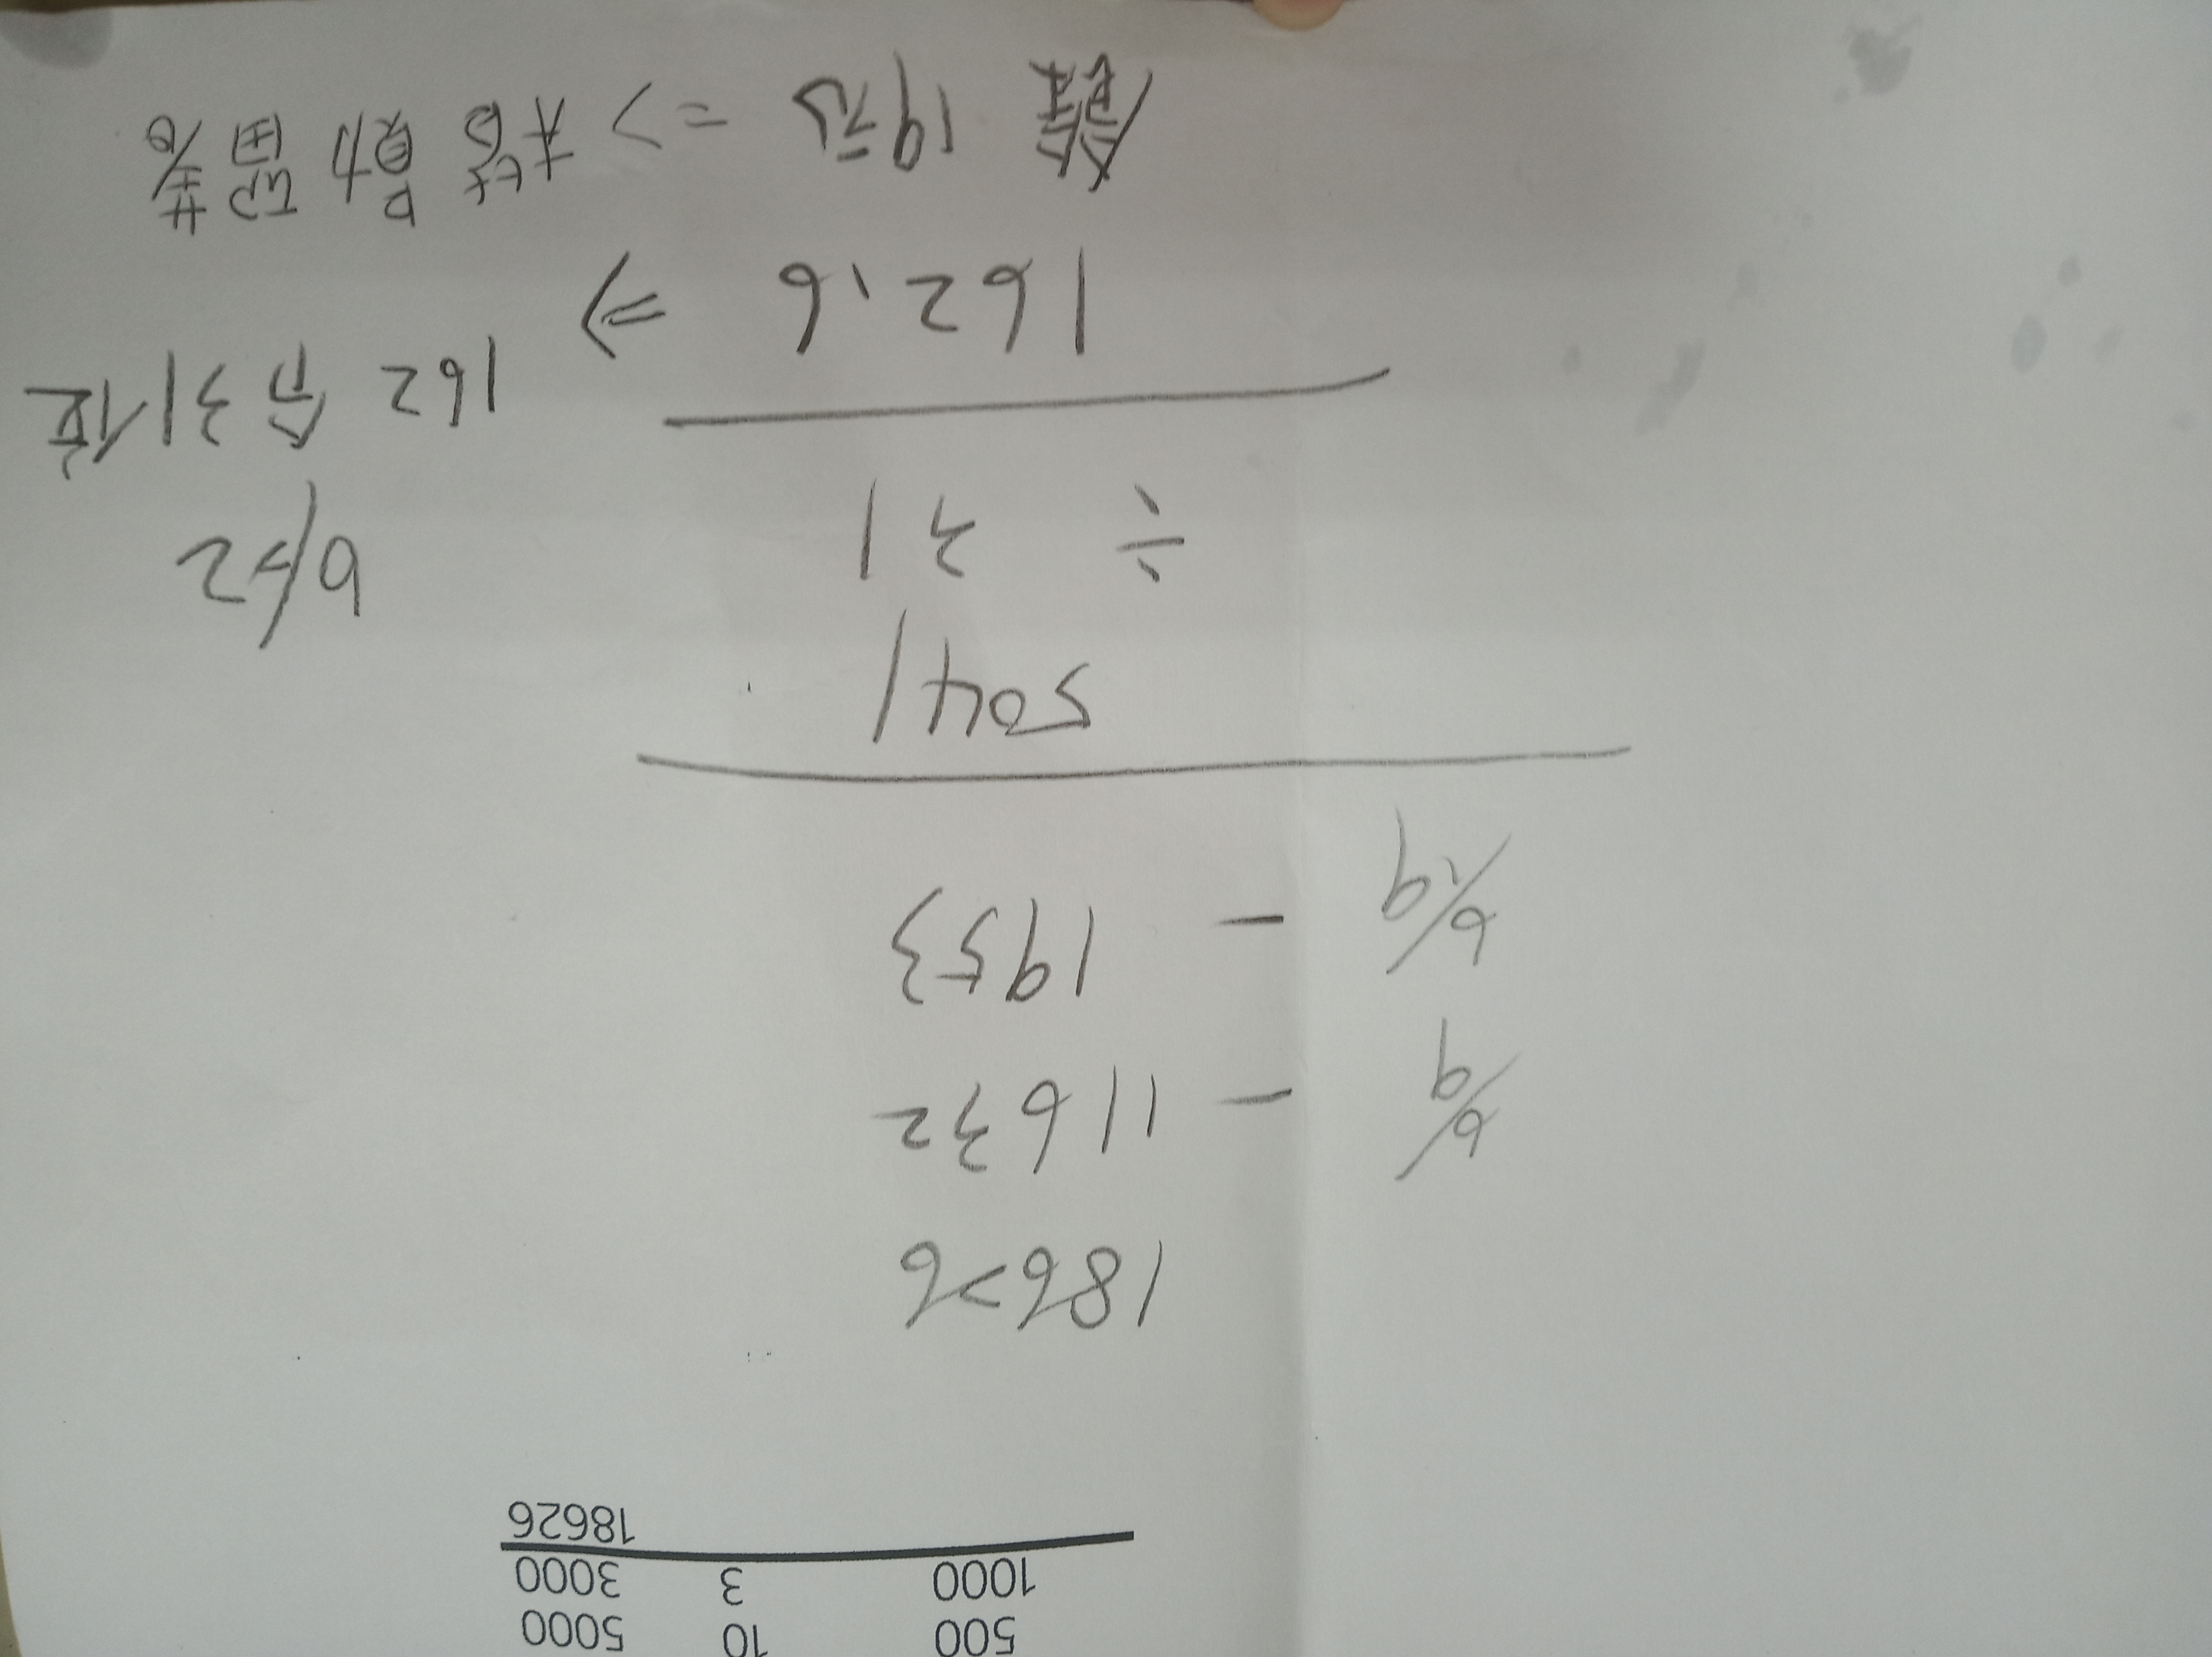 500 10 5000
1000 3 3000
18626
18626
6/9 - 11632
6/19 - 1953
5041
÷ 31
162.6 => 162 分 31位
餘 19元 =>